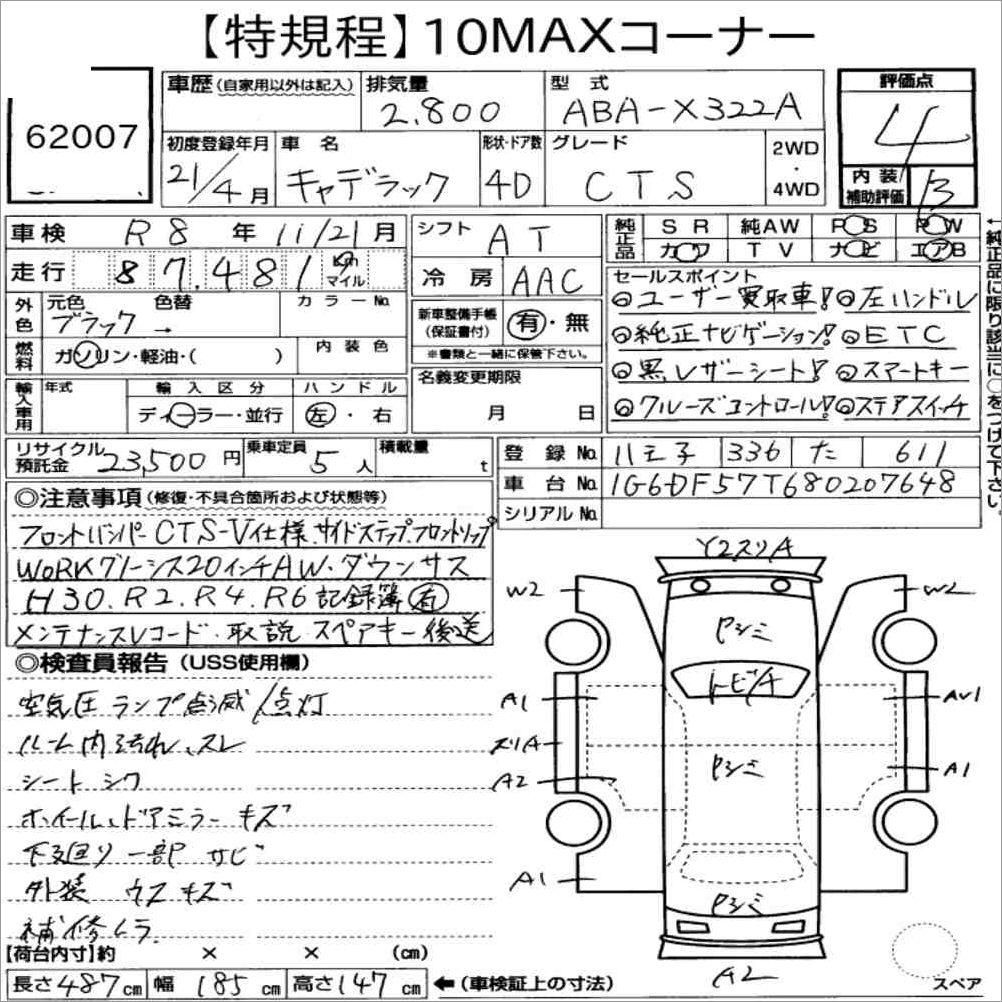 【特規程】10MAXコーナー
62007
車歴(自家用以外は記入)
排気量 2.800
型式 ABA-X322A
評価点 4
初度登録年月 21/4月
車名 キャデラック
形状・ドア数 4D
グレード CTS
2WD・4WD
内装補助評価 B
車検 R8年11/21月
走行 87.481 Km マイル
シフト AT
冷房 AAC
純正品 SR 純AW PS PW
カワ TV ナビ エアB
←純正品に限り該当に○をつけて下さい。
外色 元色 ブラック 色替 → カラーNo.
燃料 ガソリン・軽油・( ) 内装色
新車整備手帳(保証書付) 有・無
※書類と一緒に保管下さい。
名義変更期限 月 日
輸入車用 年式 輸入区分 ディーラー・並行 ハンドル 左・右
セールスポイント
◎ユーザー買取車! ◎左ハンドル
◎純正ナビゲーション! ◎ETC
◎黒レザーシート! ◎スマートキー
◎クルーズコントロール! ◎ステアスイッチ
リサイクル預託金 23,500円
乗車定員 5人
積載量 t
登録No. 八王子 336 た 611
車台No. 1G6DF57T680207648
シリアルNo.
◎注意事項(修復・不具合箇所および状態等)
フロントバンパーCTS-V仕様.サイドステップ.フロントリップ
WORKグノーシス20インチAW.ダウンサス
H30.R2.R4.R6記録簿有
メンテナンスレコード.取説.スペアキー後送
◎検査員報告(USS使用欄)
空気圧ランプ点滅/点灯
ルーム内汚れ、スレ
シートシワ
ホイール、ドアミラーキズ
下廻り一部サビ
外装ウスキズ
補修ムラ
Y2スリA
W2
W2
Pシミ
トビA
A1
AW1
スリA
Pシミ
A2
A1
A1
Pシミ
A2
スペア
【荷台内寸】約 × × (cm)
長さ487cm 幅185cm 高さ147cm ←(車検証上の寸法)